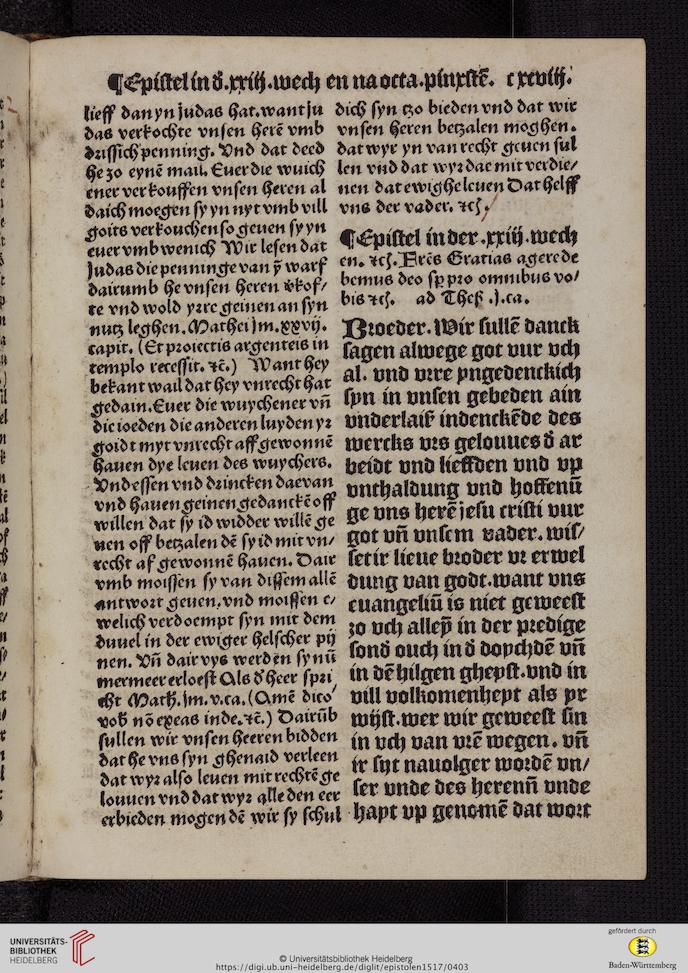 ¶Epistel in ð.xxiij.wech en na octa.pinxstē. cxcviij.
lieff dan yn judas hat.want ju
das verkochte vnsen herē vmb
drissich penning. Vnd dat deed
he zo eynē mail. Euer die wuich
ener verkouffen vnsen heren al
daich moegen sy yn nyt vmb vill
goits verkouchen so geuen sy yn
euer vmb wenich Wir lesen dat
Judas die penninge van ȳ warf
dairumb he vnsen heren
te vnd wold yrre geinen an syn
nutz leghen. Mathei jm. xxvij.
capit. (Et proiectis argenteis in
templo recessit. ⁊c̄.) Want hey
bekant wail dat hey vnrecht hat
gedain. Euer die wuychener vn̄
die ioeden die anderen luyden yr
goidt myt vnrecht aff gewonnē
hauen dye leuen des wuychers.
Vnd essen vnd drincken daevan
vnd hauen geinen gedanckē off
willen dat sy id widder willē ge
uen off betzalen dē sy id mit vn/
recht af gewonnē hauen. Dair
vmb moissen sy van dissem allē
antwort geuen, vnd moissen e/
welich verdoempt syn mit dem
duuel in der ewiger helscher pij
nen. Vn̄ dair vys werden sy nū
mermeer erloest Als ð heer spri
cht Math. jm. v. ca. (Amē dico
vob nō exeas inde. ⁊c̄.) Dairūb
sullen wir vnsen heeren bidden
dat he vns syn ghenaid verleen
dat wyr also leuen mit rechtē ge
louuen vnd dat wyr alle den eer
erbieden mogen dē wir sy schul
dich syn tzo bieden vnd dat wir
vnsen heren betzalen moghen.
dat wyr yn van recht geuen sul
len vnd dat wyr dae mit verdie/
nen dat ewighe leuen Dat helff
vns der vader. ⁊cꝫ.
¶Epistel in der .xxiij.wech
en. ⁊cꝫ. Frēs Gratias agere de
bemus deo sꝑ pro omnibus vo/
bis ⁊cꝫ. ad Theß .j.ca.
Broeder. Wir sullē danck
sagen alwege got vur vch
al. vnd vrre yngedenckich
syn in vnsen gebeden ain
vnderlaiß indenckēde des
wercks vrs gelouues ð ar
beidt vnd lieffden vnd vp
vnthaldung vnd hoffenū
ge vns herē jesu cristi vur
got vn̄ vnsem vader. wis/
set ir lieue broder vr erwel
dung van godt. want vns
euangeliū is niet geweest
zo vch alleȳ in der predige
sond ouch in ð doychdē vn̄
in dē hilgen gheyst. vnd in
vill volkomenheyt als yr
wijst. wer wir geweest sin
in vch van vrē wegen. vn̄
ir syt nauolger wordē vn/
ser vnde des herenn vnde
hayt vp genomē dat wort
UNIVERSITÄTS-
BIBLIOTHEK
HEIDELBERG
© Universitätsbibliothek Heidelberg
https://digi.ub.uni-heidelberg.de/diglit/epistolen1517/0403
gefördert durch
Baden-Württemberg